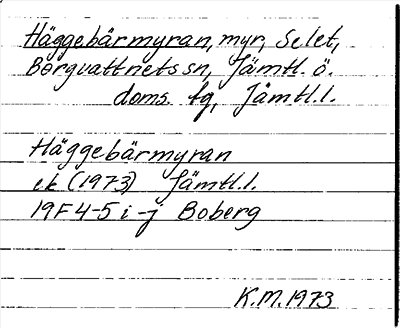 Häggebärmyran, myr, Selet,
Borgvattnets sn, Jämtl. ö.
doms. tg, Jämtl.l.
Häggebärmyran
ek (1973) Jämtl.l.
19F4-5 i-j Boberg
K.M.1973